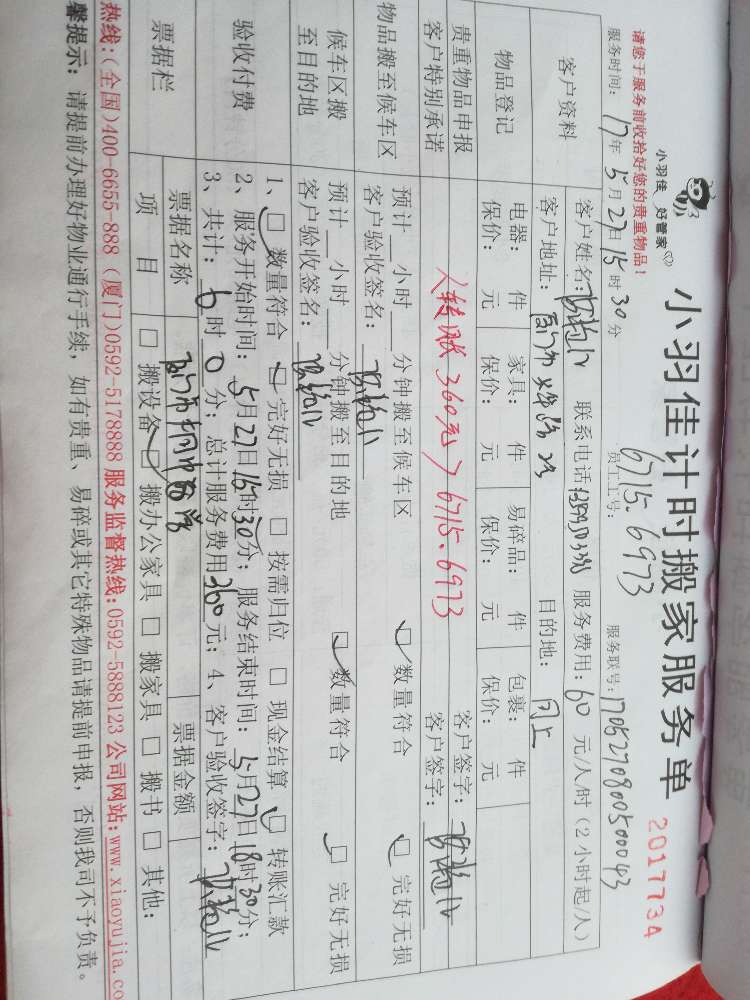 小羽佳 好管家
小羽佳计时搬家服务单
2017734
请您于服务前收拾好您的贵重物品！
员工工号：6715.6973
服务联号：17052708005000043
服务时间：17年5月27日15时30分
客户资料
客户姓名：
联系电话
服务费用：60元/人/时（2小时起/人）
客户地址：
目的地：同上
物品登记
电器： 件 家具： 件 易碎品： 件 包裹： 件
保价： 元 保价： 元 保价： 元 保价： 元
贵重物品申报
客户签字：
客户特别承诺
转账360元 6715.6973
客户签字：
物品搬至候车区
预计__小时__分钟搬至候车区 □数量符合 □完好无损
客户验收签名：
候车区搬至目的地
预计__小时__分钟搬至目的地 □数量符合 □完好无损
客户验收签名：
验收付费
1、□数量符合 □完好无损 □按需归位 □现金结算 □转账汇款
2、服务开始时间：5月27日15时30分；服务结束时间：5月27日18时30分；
3、共计：6时0分；总计服务费用360元；4、客户验收签字：
票据栏
票据名称
票据金额
项目 □搬设备 □搬办公家具 □搬家具 □搬书 □其他：
热线：(全国)400-6655-888 (厦门)0592-5178888 服务监督热线：0592-5888123 公司网站：www.xiaoyujia.co
馨提示：请提前办理好物业通行手续，如有贵重、易碎或其它特殊物品请提前申报，否则我司不予负责。